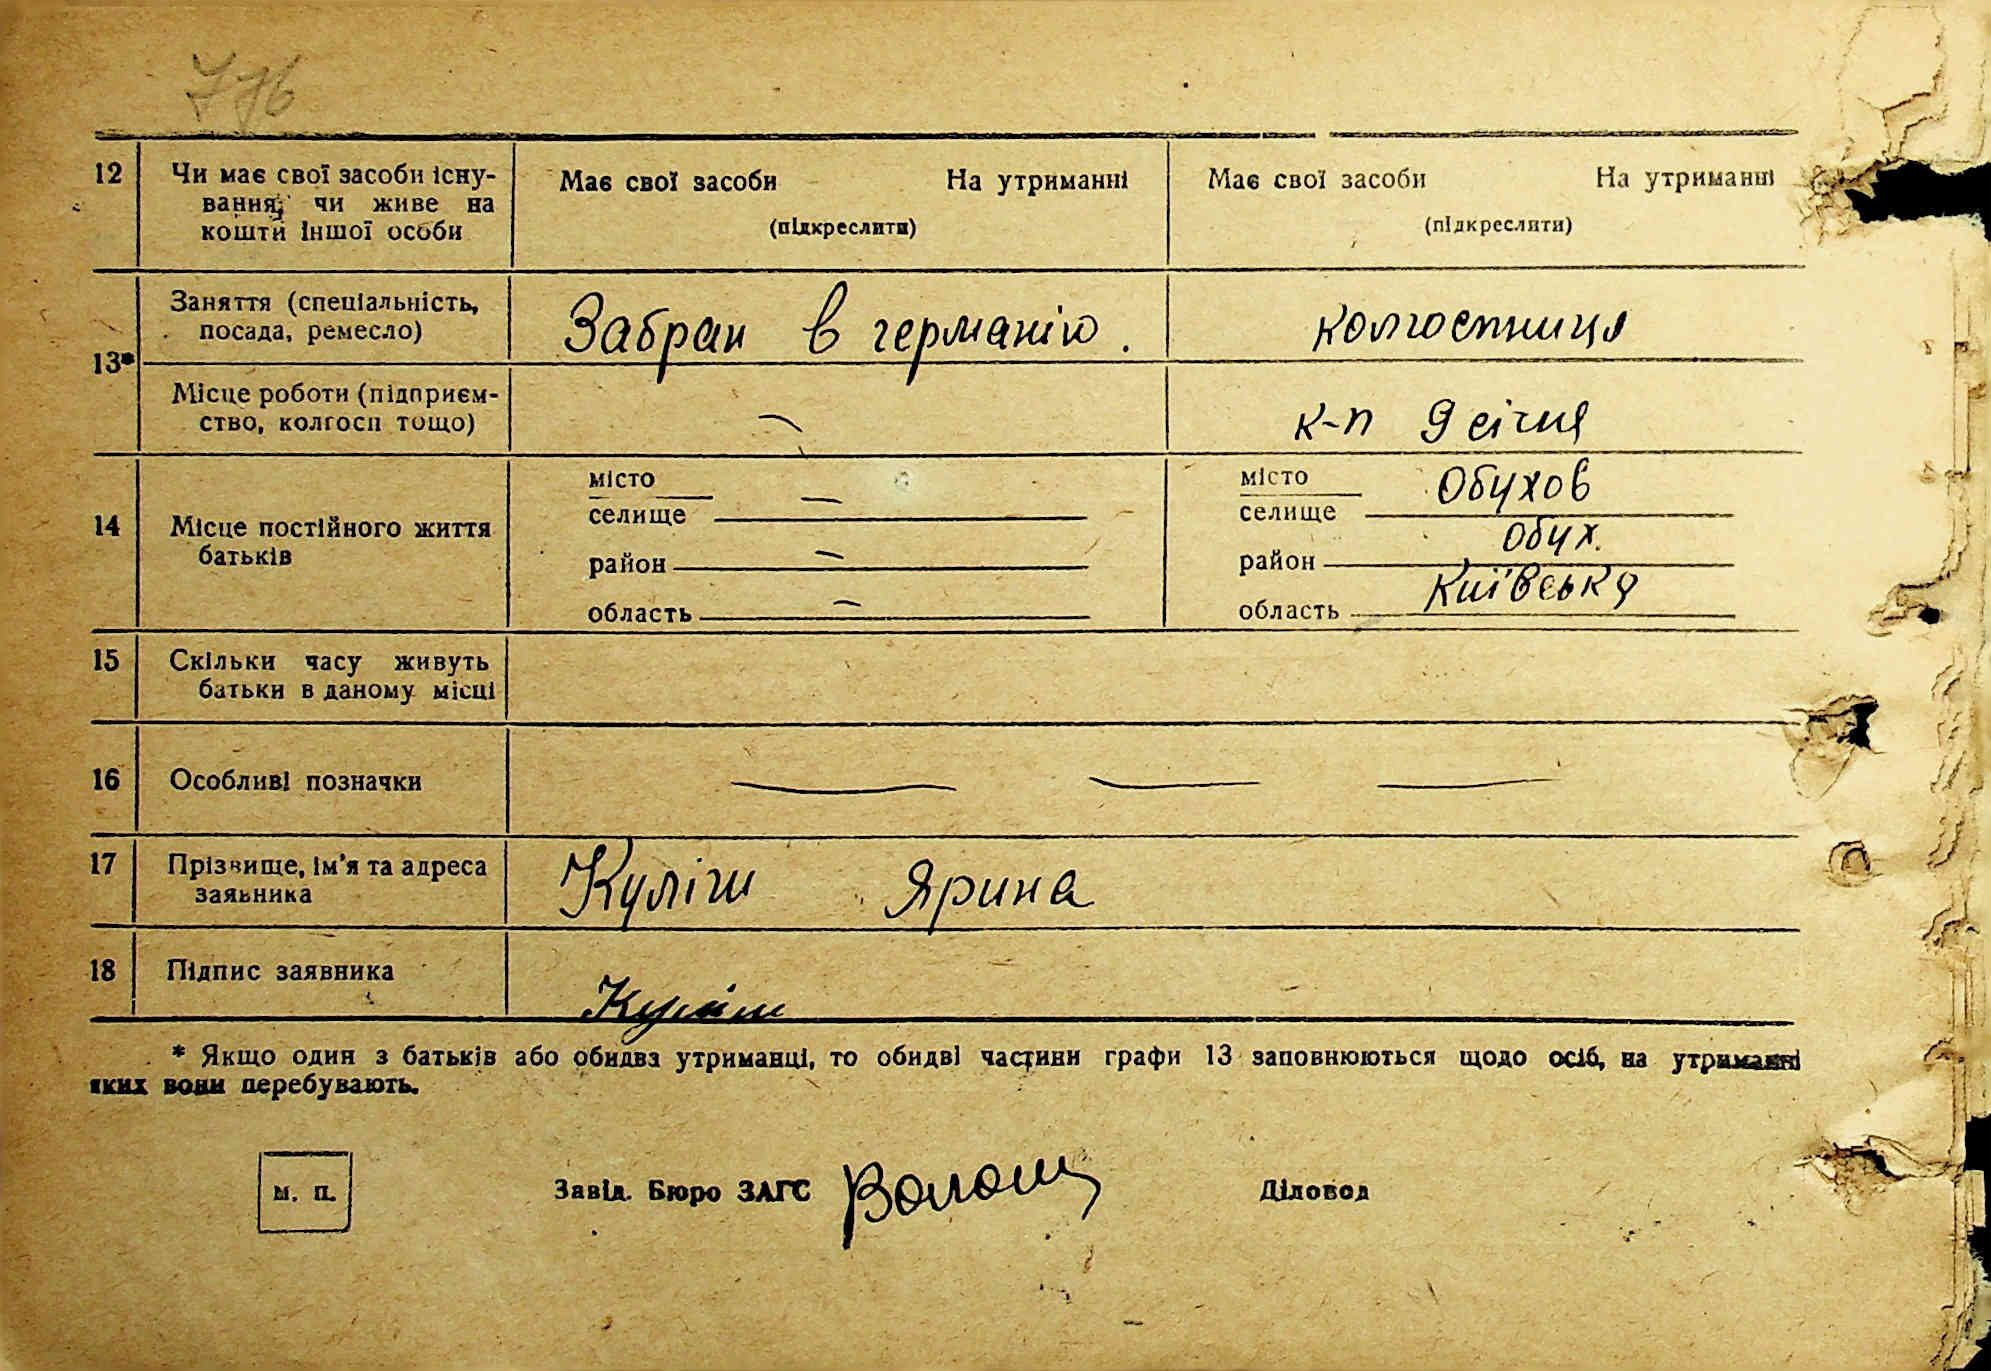 776
12 Чи має свої засоби існу- Має свої засоби На утриманні Має свої засоби На утриманні
вання, чи живе на
кошти іншої особи (підкреслити) (підкреслити)
13* Заняття (спеціальність, Забран в германію. колгоспниця
посада, ремесло)
Місце роботи (підприєм- к-п 9 січня
ство, колгосп тощо) –
14 Місце постійного життя
батьків
місто – місто Обухов
селище селище
район – район Обух.
область – область Київська
15 Скільки часу живуть
батьки в даному місці
16 Особливі позначки — — —
17 Прізвище, ім'я та адреса Куліш Ярина
заявника
18 Підпис заявника Куліш
* Якщо один з батьків або обидва утриманці, то обидві частини графи 13 заповнюються щодо осіб, на утриманні
яких вони перебувають.
м. п. Завід. Бюро ЗАГС Діловод